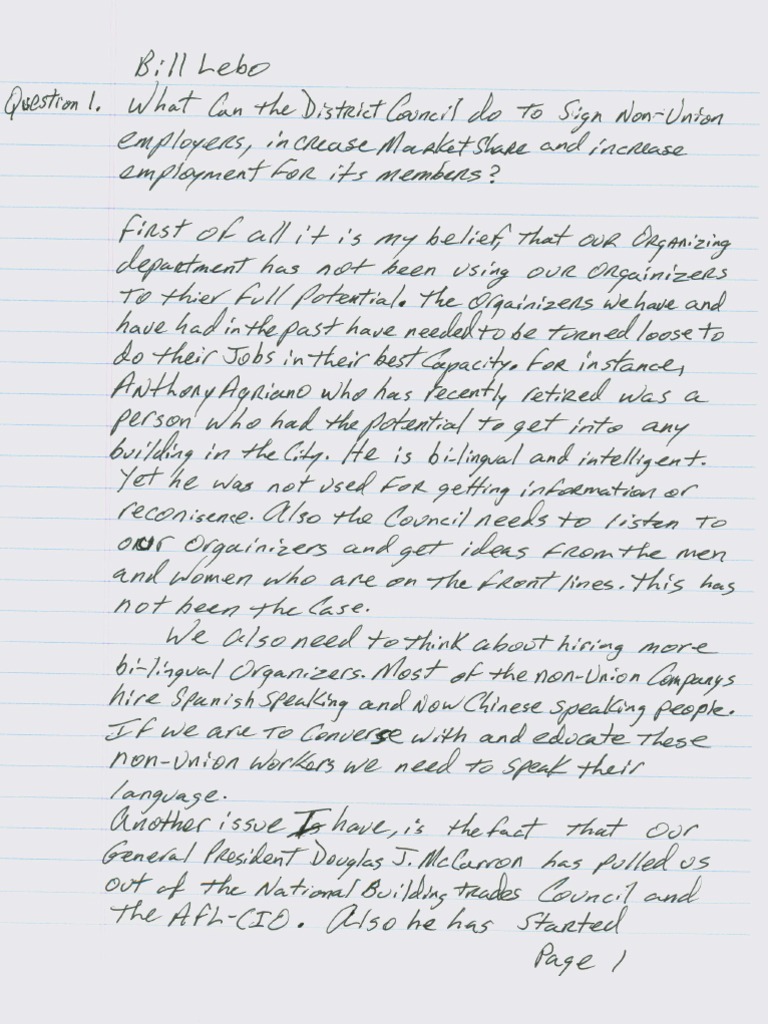 Bill Lebo
Question 1. What Can the District Council do to Sign Non-Union
employers, increase Market Share and increase
employment for its members?
First of all it is my belief, that our Organizing
department has not been using our Orgainizers
To thier full Potential. The Orgainizers we have and
have had in the past have needed to be turned loose to
do their Jobs in their best Capacity. For instance,
Anthony Agriano who has recently retired was a
person who had the potential to get into any
building in the City. He is bi-lingual and intelligent.
Yet he was not used for getting information or
reconisence. Also the Council needs to listen to
our Orgainizers and get ideas from the men
and women who are on the front lines. This has
not been the Case.
We also need to think about hiring more
bi-lingual Organizers. Most of the non-Union Companys
hire Spanish Speaking and now Chinese speaking people.
If we are To Converse with and educate These
non-union workers we need to speak their
language.
Another issue I have, is the fact that our
General President Douglas J. McCarron has pulled us
out of the National Building trades Council and
the AFL-CIO. Also he has Started
Page 1